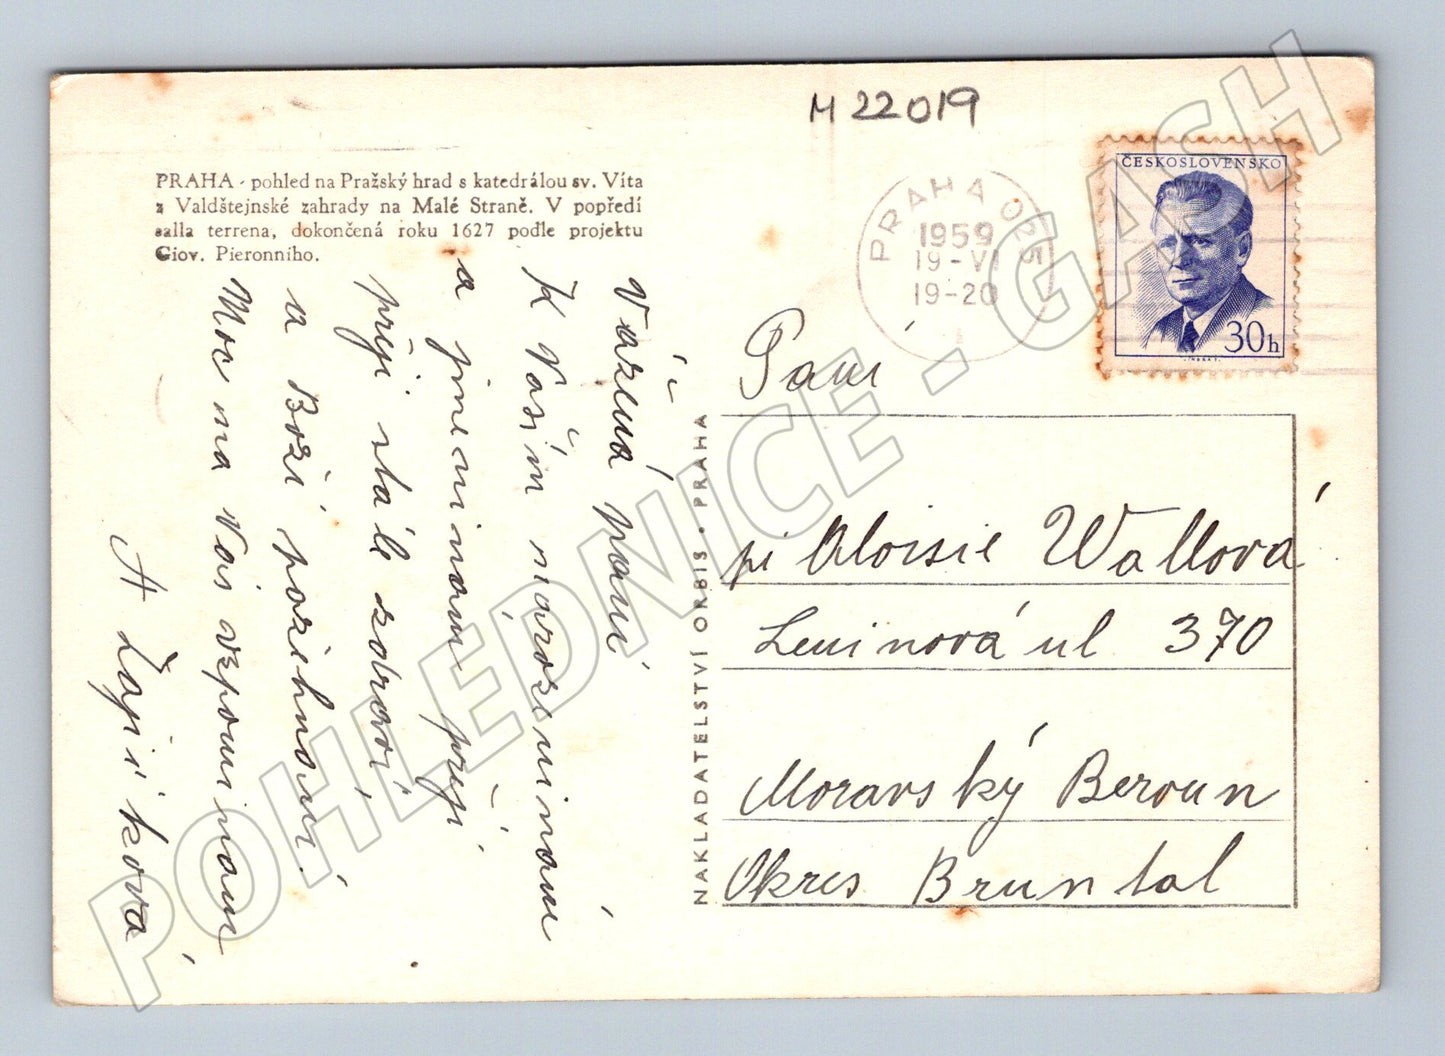 M 22019
PRAHA - pohled na Pražský hrad s katedrálou sv. Víta
z Valdštejnské zahrady na Malé Straně. V popředí
salla terrena, dokončená roku 1627 podle projektu
Giov. Pieronniho.
PRAHA 025
1959
19-VI
19-20
1
ČESKOSLOVENSKO
30h
Vážená paní
K Vašim narozeninám
a jmeninám přeji
přeji stálé zdraví
a Boží požehnání.
Moc na Vás vzpomínám
A
NAKLADATELSTVÍ ORBIS • PRAHA
Paní
pí Aloisie Wallová
Leninová ul 370
Moravský Beroun
Okres Bruntal
POHLEDNICE - GASH